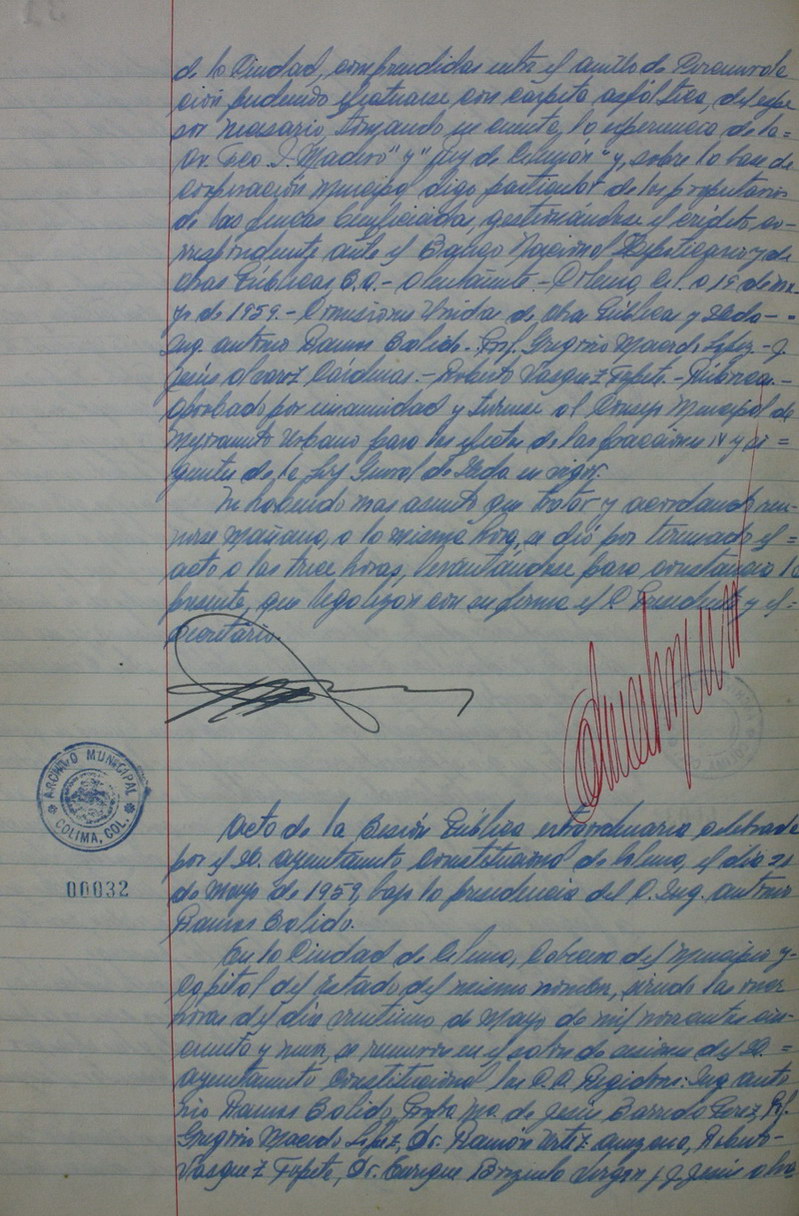 de la Ciudad, comprendidas entre el anillo de Circunvala
ción pudiendo efectuarse con carpeta asfáltica, del espe
sor necesario, tomando en cuenta, la experiencia de la=
Av. Fco. I. Madero" y " Rey de Colimán" y, sobre la base de
cooperación Municipal digo particular de los propietarios
de las fincas beneficiadas, gestionándose el crédito co-
rrespondiente ante el Banco Nacional Hipotecario y de
Obras Públicas S.A.- Atentamente.- Colima, Col. a 19 de ma-
yo de 1959.- Comisiones Unidas de Obras Públicas y Hda.-
Ing. Antonio Ramos Salido.- Prof. Gregorio Macedo López.- J.
Jesús Alvarez Cárdenas.- Roberto Vásquez Topete.- Rúbricas.-
Aprobado por unanimidad y túrnese al Consejo Municipal de
Mejoramiento Urbano para los efectos de las fracciones IV y si=
guientes de la Ley General de Hda en vigor.
No habiendo mas asuntos que tratar y acordando reu-
nirse mañana, a la misma hora, se dió por terminado el =
acto a las trece horas, levantándose para constancia la
presente, que legalizan con su firma el C. Presidente y el=
Secretario.
ARCHIVO MUNICIPAL
COLIMA, COL.
00032
Acta de la Sesión Pública extraordinaria celebrada
por el H. Ayuntamiento Constitucional de Colima, el día 21
de Mayo de 1959, bajo la presidencia del C. Ing. Antonio
Ramos Salido.
En la Ciudad de Colima, Cabecera del Municipio y-
Capital del Estado del mismo nombre, siendo las
horas del día veintiuno de Mayo de mil novecientos cin-
cuenta y nueve, se reunieron en el salón de sesiones del H. =
Ayuntamiento Constitucional los C.C. Regidores: Ing. Anto
nio Ramos Salido, Ma. de Jesús Barreda Pérez, Prof.
Gregorio Macedo López, Dr. Ramón Ortiz Anzano, Roberto-
Vásquez Topete, Dr. Enrique Brizuela Virgen y J. Jesús Alva